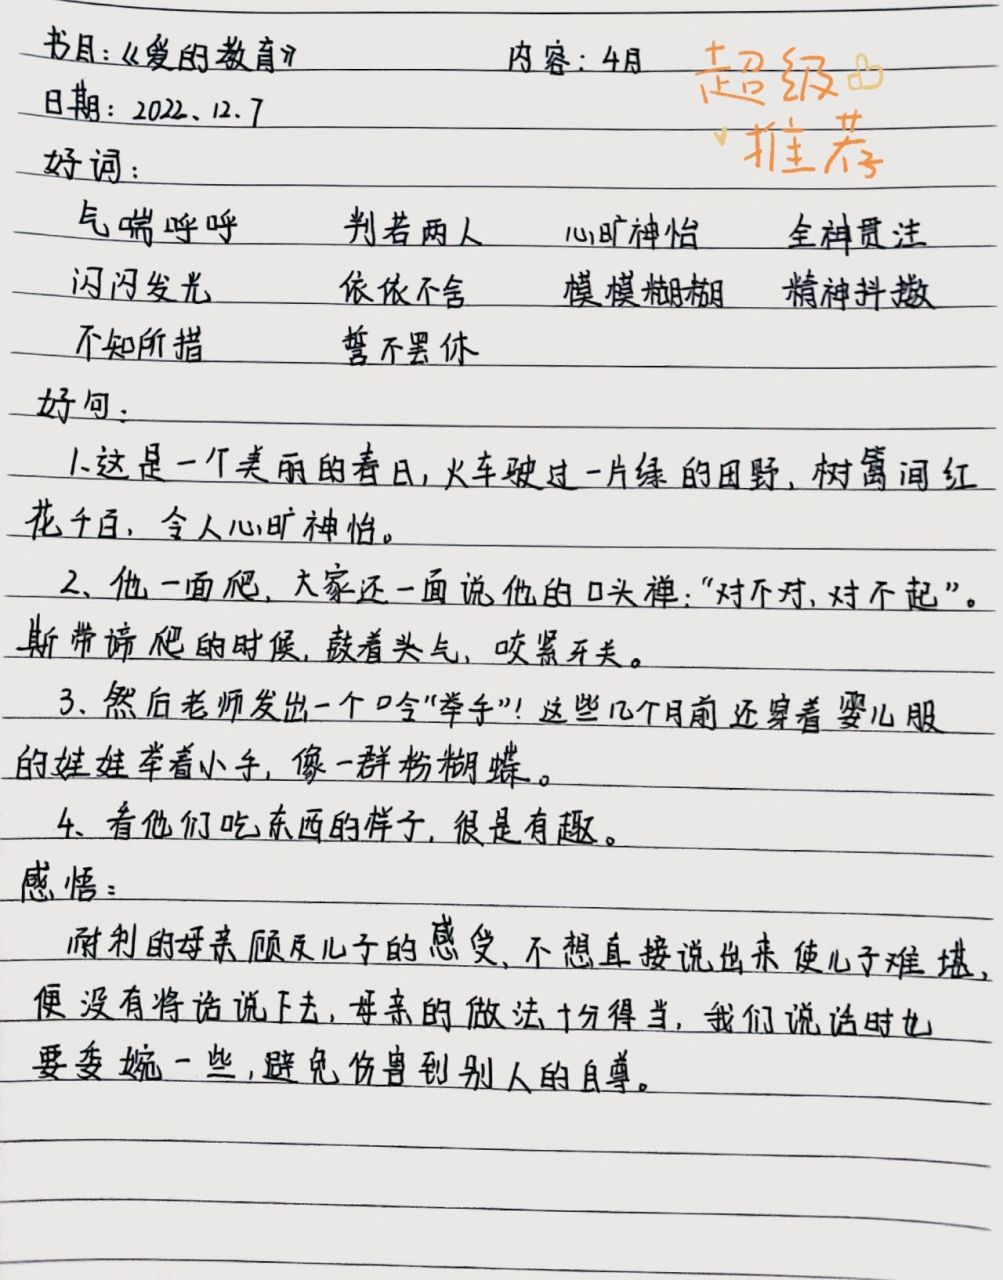 书目:《爱的教育》 内容:4月
超级
推荐
日期:2022、12.7
好词:
气喘呼呼 判若两人 心旷神怡 全神贯注
闪闪发光 依依不舍 模模糊糊 精神抖擞
不知所措 誓不罢休
好句:
1、这是一个美丽的春日,火车驶过一片绿的田野,树篱间红
花千百,令人心旷神怡。
2、他一面爬,大家还一面说他的口头禅:“对不对,对不起”。
斯带谛爬的时候,鼓着头气,咬紧牙关。
3、然后老师发出一个口令“举手”!这些几个月前还穿着婴儿服
的娃娃举着小手,像一群粉糊蝶。
4、看他们吃东西的样子,很是有趣。
感悟:
耐利的母亲顾及儿子的感受,不想直接说出来使儿子难堪,
便没有将话说下去,母亲的做法十分得当,我们说话时也
要委婉一些,避免伤害到别人的自尊。